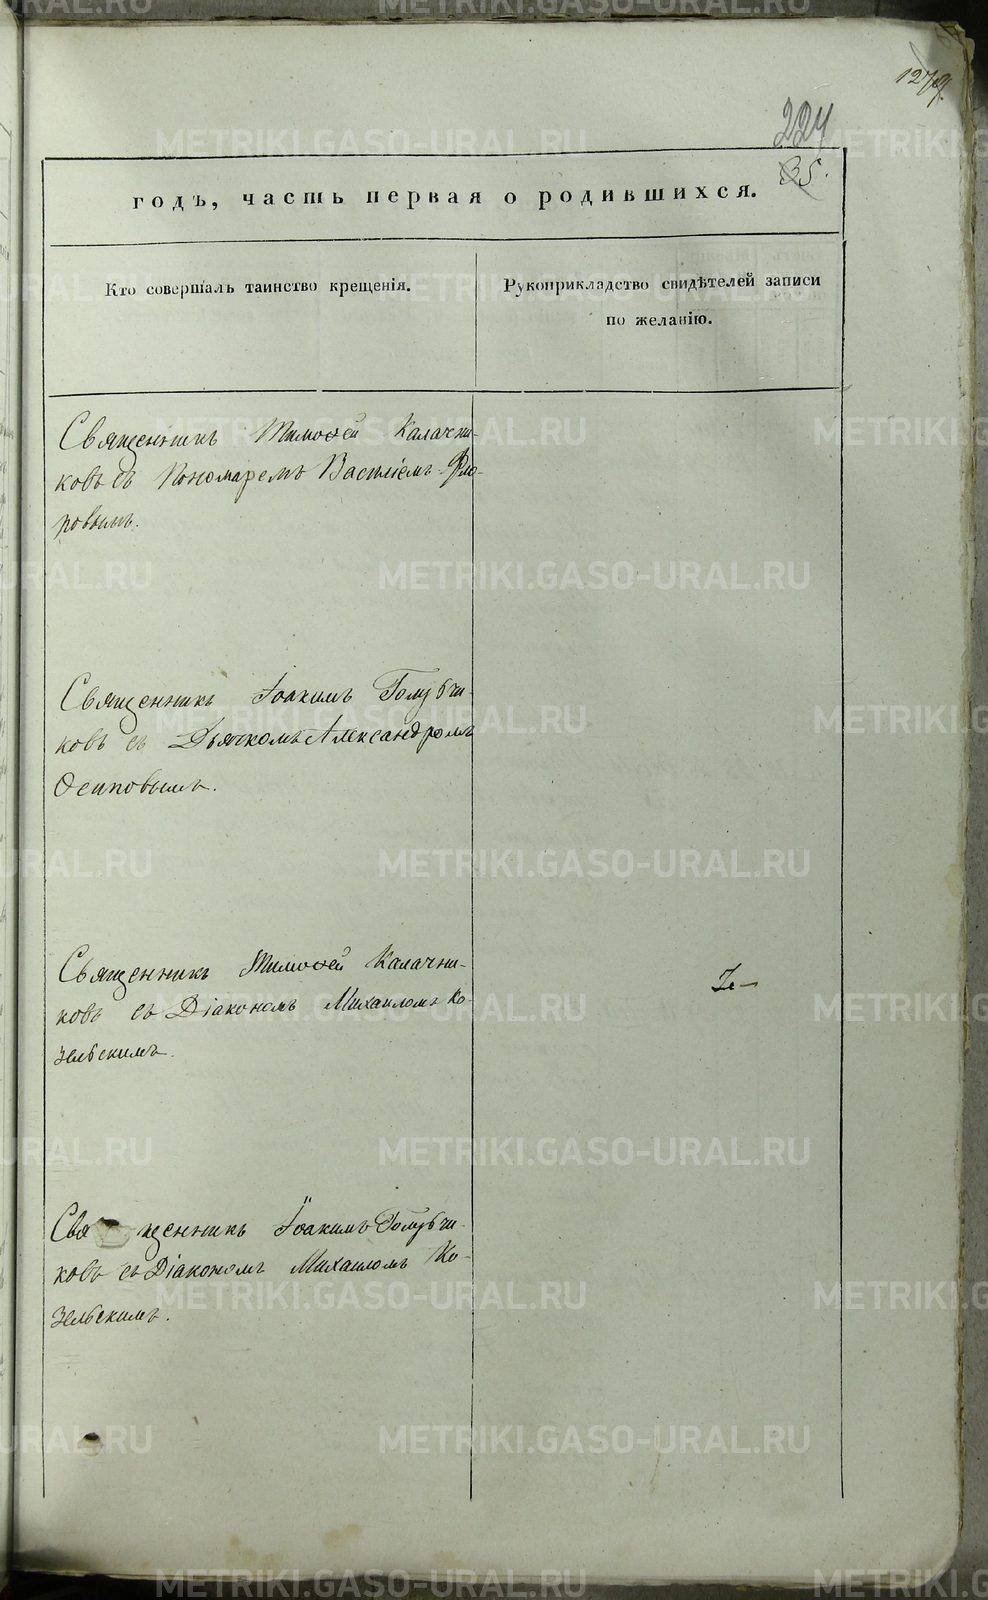 224
35.
годъ, часть первая о родившихся.
Кто совершалъ таинство крещенія.
Рукоприкладство свидѣтелей записи
по желанію.
Священникъ Тимоѳей Калачни-
ковъ съ Пономаремъ Василіемъ Фло-
ровымъ.
Священникъ Іоакимъ Голубчи-
ковъ съ Дьячкомъ Александромъ
Осиповымъ.
Священникъ Тимоѳей Калачни-
ковъ съ Діакономъ Михаиломъ Ко-
зельскимъ.
Священникъ Іоакимъ Голубчи-
ковъ съ Діакономъ Михаиломъ Ко-
зельскимъ.
METRIKI.GASO-URAL.RU